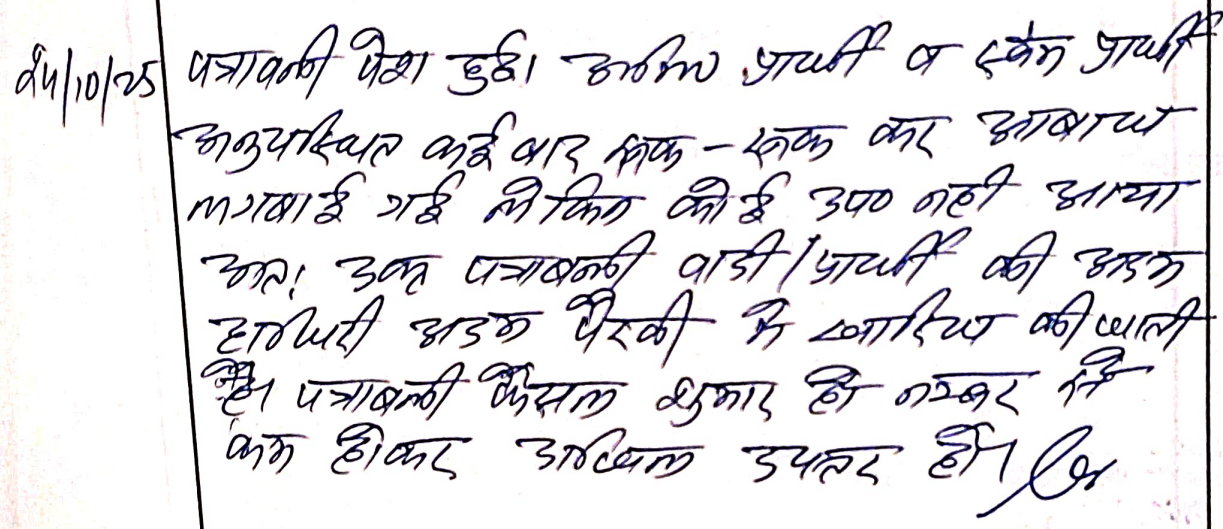 24/10/25 पत्रावली पेश हुई। अभि० प्रार्थी व स्वंम प्रार्थी
अनुपस्थित कई बार रूक-रूक कर आबाज
लगबाई गई लेकिन कोई उप० नही आया
अतः उक्त पत्राबली वादी/प्रार्थी की अदम
हाजिरी अदम पैरवी मे खारिज की जाती
है। पत्राबली फैसल शुमार हो नम्बर से
कम होकर दाखिल दफ्तर हो।